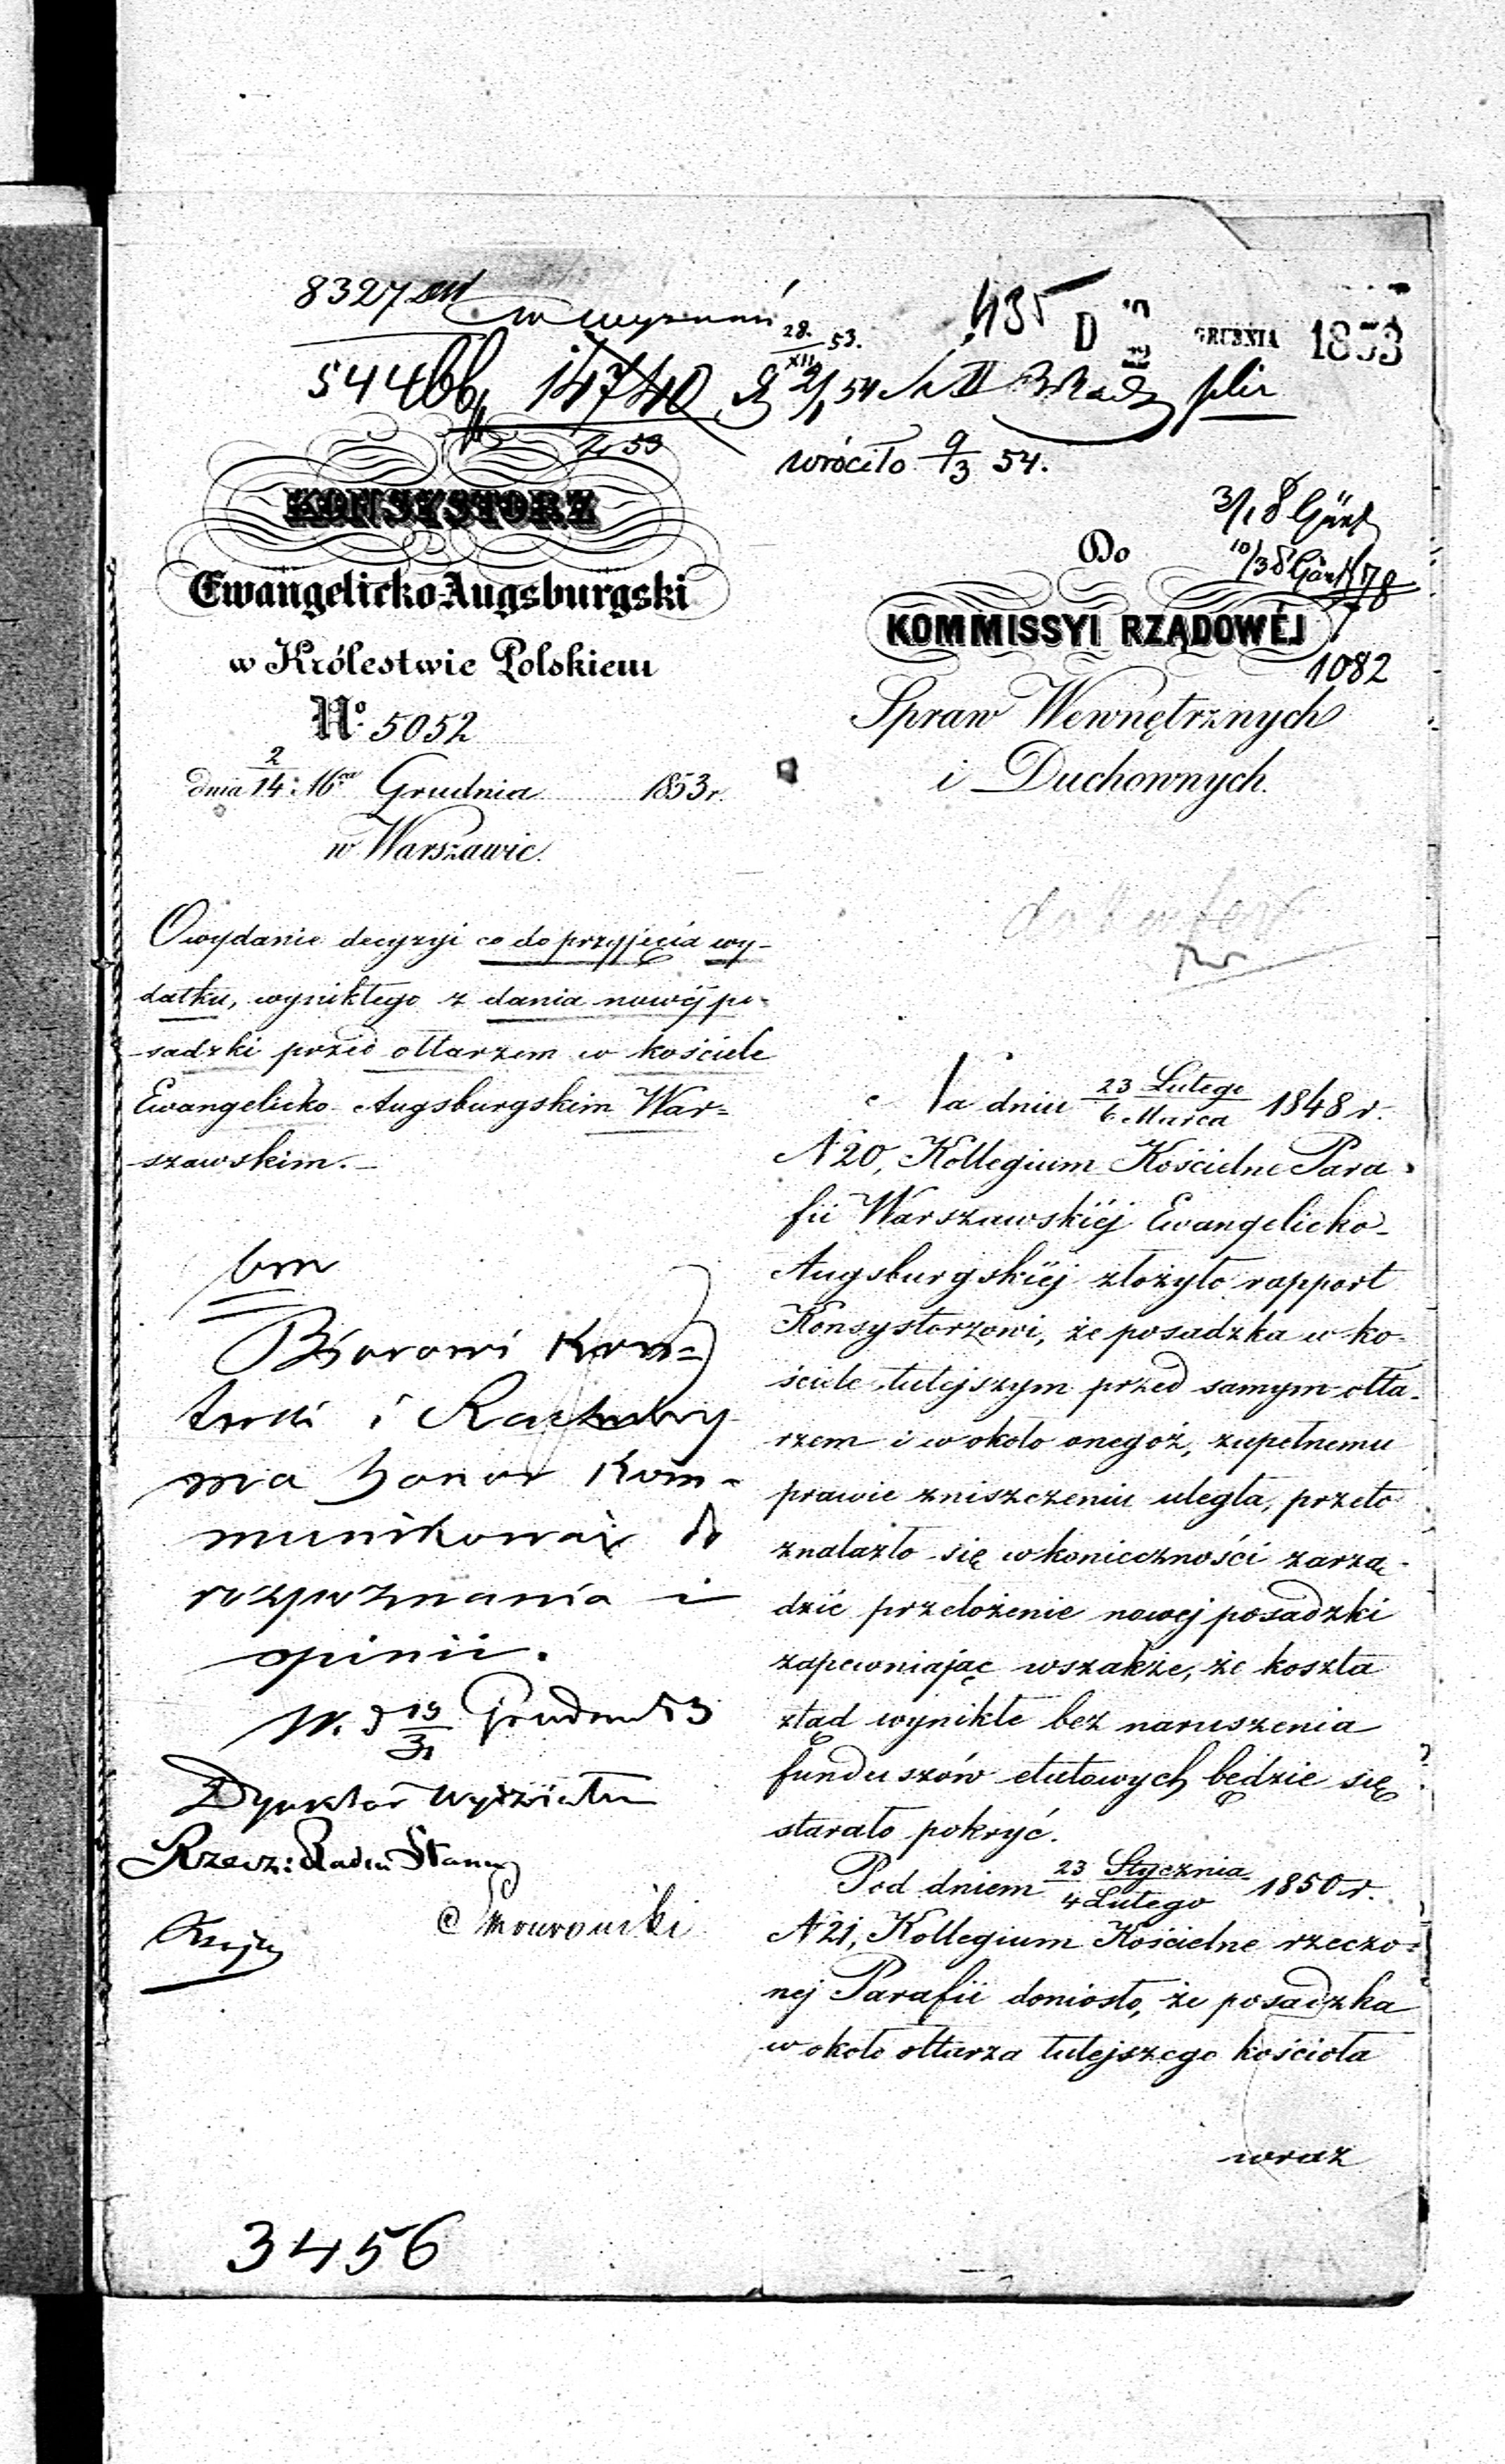 8327
w wyznań
28./XII 53.
435
D
GRUDNIA 1853
544
14740
2/1 54
wróciło 9/3 54.
KONSYSTORZ
Ewangelicko-Augsburgski
w Królestwie Polskiem
No. 5052
dnia 2/14: 16 Grudnia 1853 r.
w Warszawie.
3/1 8
Do
10/3 8
KOMMISSYI RZĄDOWÉJ
1082
Spraw Wewnętrznych
i Duchownych.
O wydanie decyzyi co do przyjęcia wy-
datku, wynikłego z dania nowéj po-
sadzki przed ołtarzem w kościele
Ewangelicko-Augsburgskim War=
szawskim.
bm
Biórowi Kon=
troli i Rachuby
ma honor kom-
munikować do
rozpoznania i
opinii.
W. d 19/31 Grudnia 53
Dyrektor Wydziału
Rzecz: Radca Stanu
Na dniu 23 Lutego/6 Marca 1848 r.
N 20, Kollegium Kościelne Para-
fii Warszawskiéj Ewangelicko-
Augsburgskiéj złożyło rapport
Konsystorzowi, że posadzka w ko-
ściele tutejszym przed samym ołta-
rzem i w około onegoż, zupełnemu
prawie zniszczeniu uległa, przeto
znalazło się w konieczności zarzą-
dzić przełożenie nowej posadzki
zapewniając wszakże, że koszta
ztąd wynikłe bez naruszenia
funduszów etatowych będzie się
starało pokryć.
Pod dniem 23 Stycznia/4 Lutego 1850 r.
N 21, Kollegium Kościelne rzeczo=
nej Parafii doniosło, że posadzka
w około ołtarza tutejszego kościoła
wraz
3456